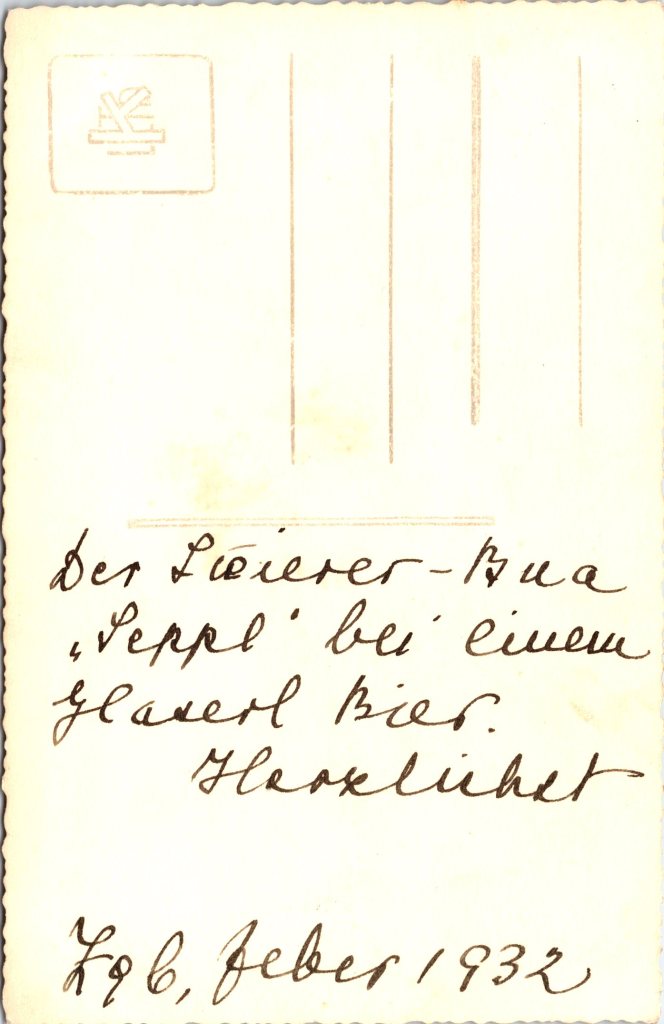 Der Steierer-Bua
„Seppl“ bei einem
Glaserl Bier.
Herzlichst
Zgb, feber 1932